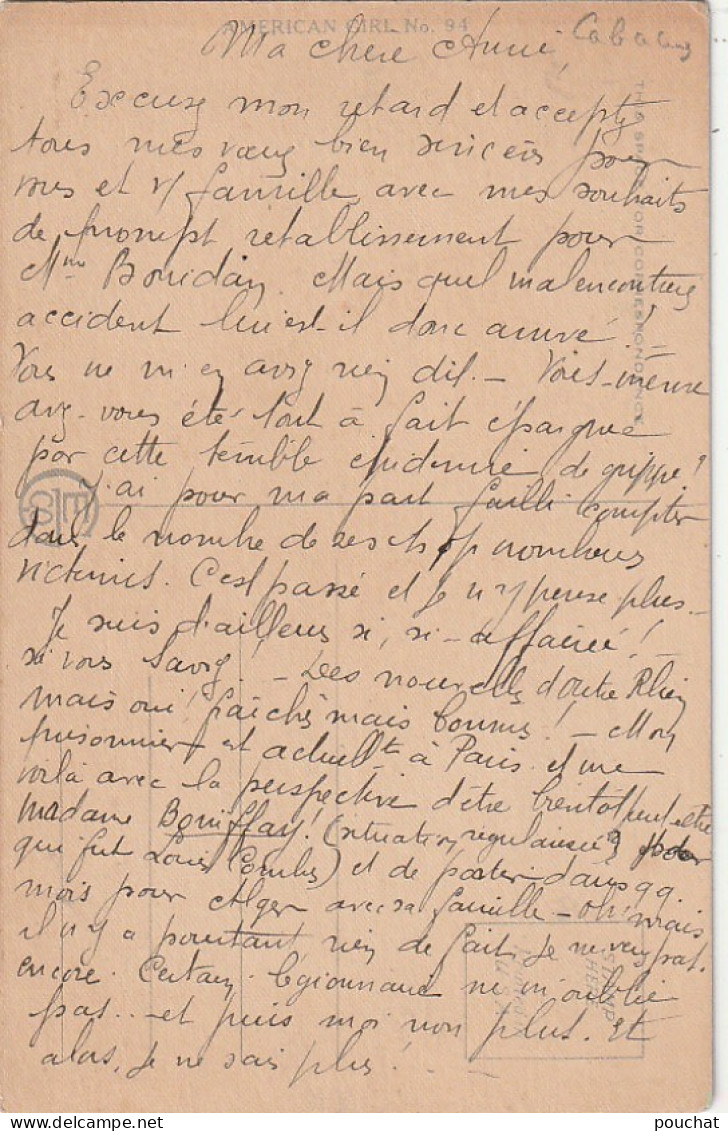 AMERICAN GIRL No. 94
Ma chère Amie,
Excusez mon retard et acceptez
tous mes vœux bien sincères pour
vous et v/ famille, avec mes souhaits
de prompt retablissement pour
Mme Bouidan. Mais quel malencontreux
accident lui est-il donc arrivé?
Vous ne m'en avez rien dit. – Vous-même
avez-vous été tout à fait épargnée
par cette terrible epidemie de grippe?
J'ai pour ma part failli compter
dans le nombre de ses trop nombreuses
victimes. C'est passé et je n'y pense plus. –
Je suis d'ailleurs si, si – affairée! –
si vous savez! – Des nouvelles d'outre Rhin
mais oui! fraîches mais bonnes! – Mon
prisonnier est actuellt à Paris et me
voilà avec la perspective d'être bientôt peut-être
madame Boniffay! (situation régularisée
qui fut Louis Combes) et de partir dans qq.
mois pour Alger avec sa famille – Oh! mais
il n'y a pourtant rien de fait. Je ne veux pas
encore. Certain légionnaire ne m'oublie
pas.. – et puis moi non plus. Et
alors, je ne sais plus!
THIS SPACE FOR CORRESPONDENCE
STAMP
HERE
pouchat